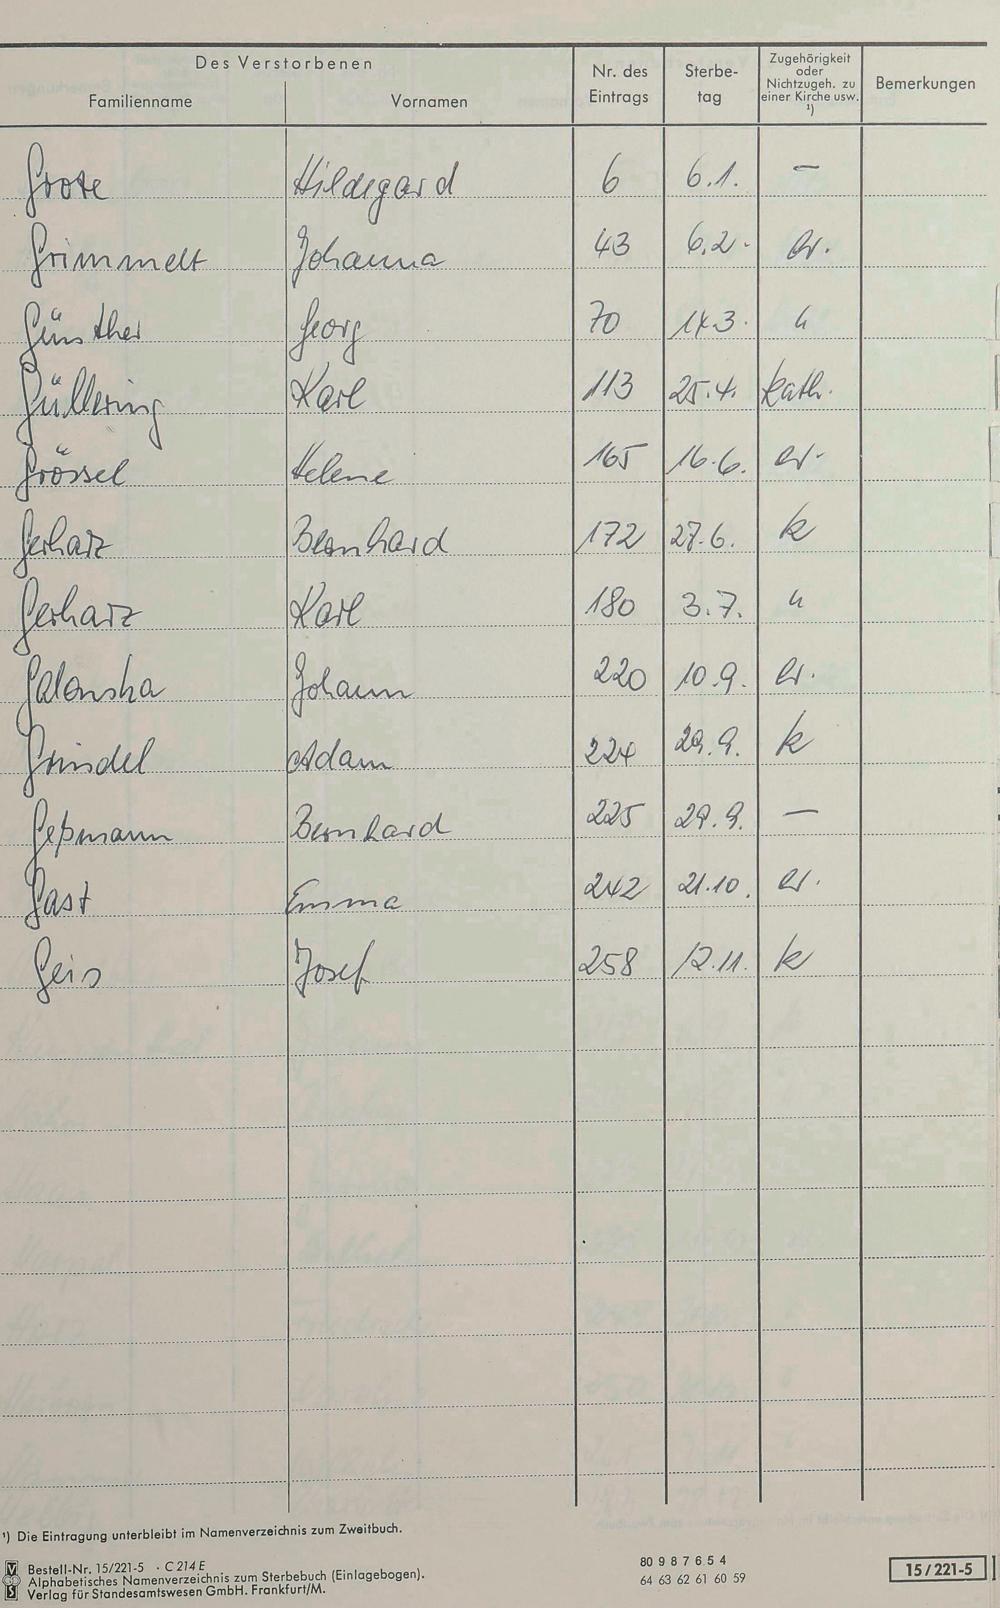 Des Verstorbenen
Familienname Vornamen Nr. des Eintrags Sterbe-tag Zugehörigkeit oder Nichtzugeh. zu einer Kirche usw. ¹) Bemerkungen
Grote Hildegard 6 6.1. —
Grimmelt Johanna 43 6.2. ev.
Günther Georg 70 14.3. "
Güllering Karl 113 25.4. kath.
Grössel Helene 165 16.6. ev.
Gerharz Bernhard 172 27.6. k
Gerharz Karl 180 3.7. "
Galonska Johann 220 10.9. ev.
Grindel Adam 224 29.9. k
Geßmann Bernhard 225 29.9. —
Gast Emma 242 21.10. ev.
Geis Josef 258 12.11. k
¹) Die Eintragung unterbleibt im Namenverzeichnis zum Zweitbuch.
Bestell-Nr. 15/221-5 · C 214 E
Alphabetisches Namenverzeichnis zum Sterbebuch (Einlagebogen).
Verlag für Standesamtswesen GmbH. Frankfurt/M.
80 9 8 7 6 5 4
64 63 62 61 60 59
15/221-5